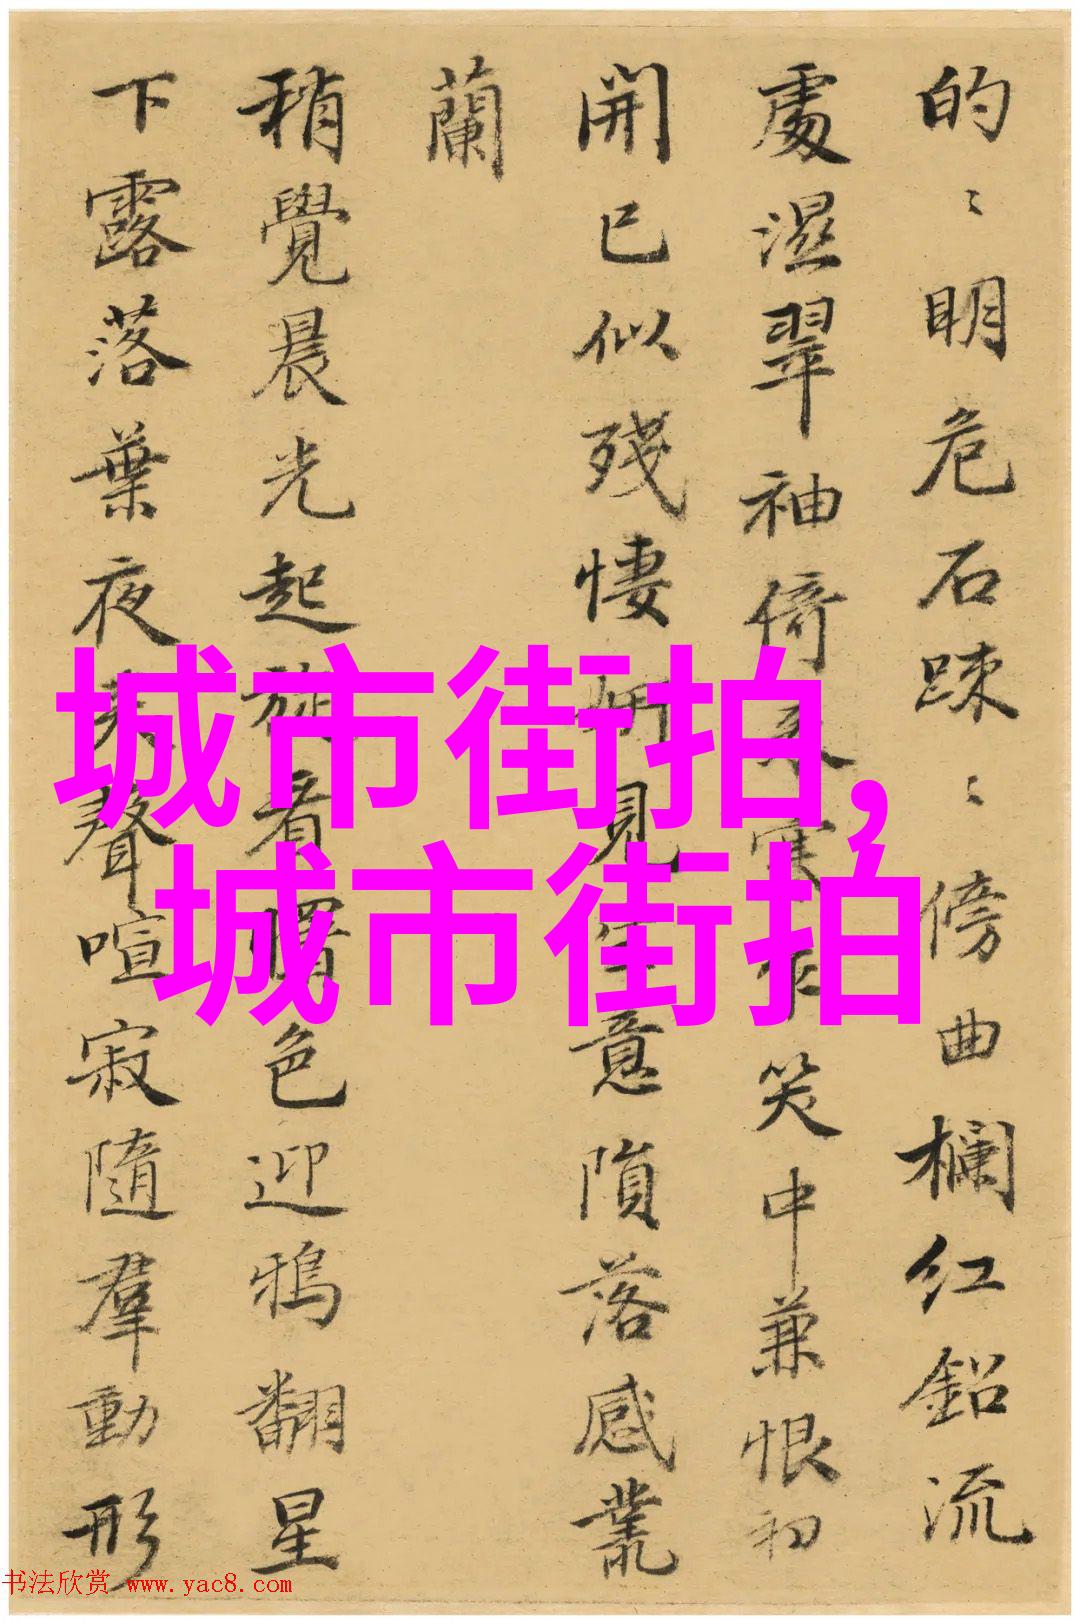 的〻明危石踈〻傍曲欄红鉛流
處濕翠袖倚来寒笑中兼恨初
開已似殘悽妍見生意隕落感叢
蘭
稍覺晨光起旋看曙色迎鴉翻星
下露落葉夜来聲喧寂隨羣動形
城市街拍,
城市街拍
书法欣赏 www.yac8.com